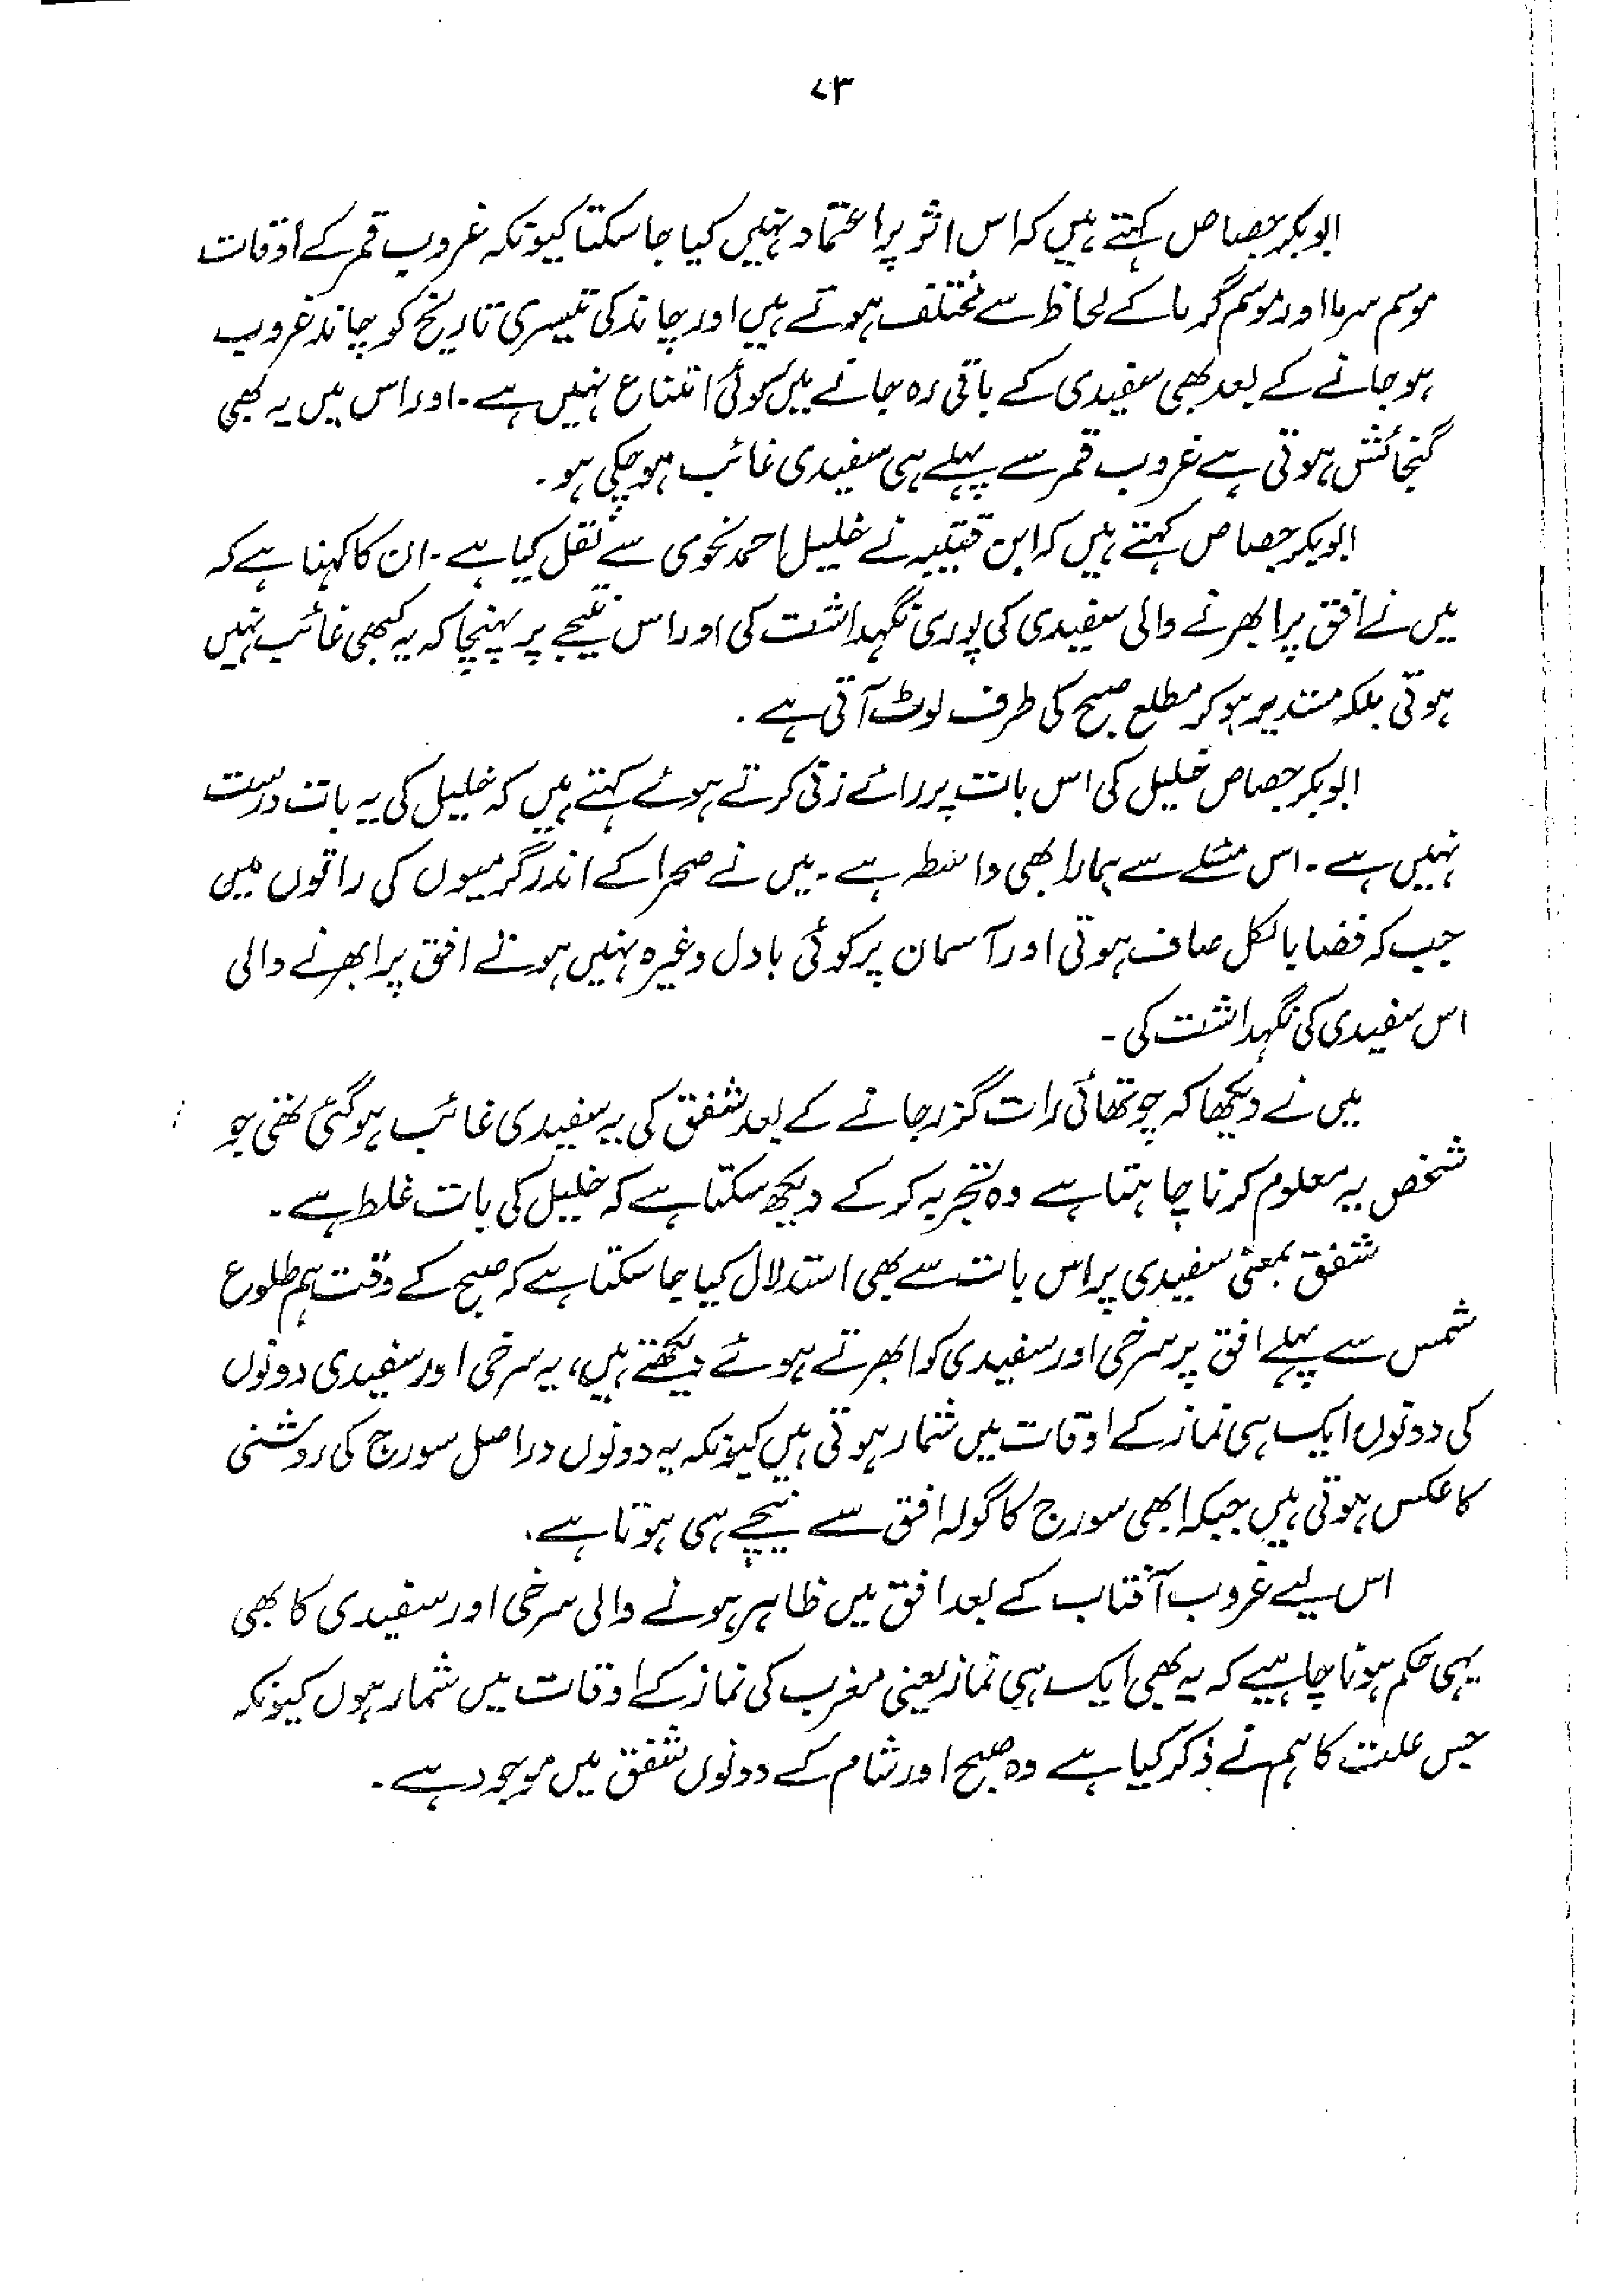 ۷۳
ابوبکر جصاص کہتے ہیں کہ اس اثر پر اعتماد نہیں کیا جا سکتا کیونکہ غروب قمر کے اوقات
موسم سرما اور موسم گرما کے لحاظ سے مختلف ہوتے ہیں اور چاند کی تیسری تاریخ کو چاند غروب
ہو جانے کے بعد بھی سفیدی کے باقی رہ جانے میں کوئی امتناع نہیں ہے۔ اور اس میں یہ بھی
گنجائش ہوتی ہے غروب قمر سے پہلے ہی سفیدی غائب ہو چکی ہو۔
ابوبکر جصاص کہتے ہیں کہ ابن قتیبہ نے خلیل احمد نحوی سے نقل کیا ہے۔ ان کا کہنا ہے کہ
میں نے افق پر ابھرنے والی سفیدی کی پوری نگہداشت کی اور اس نتیجے پر پہنچا کہ یہ کبھی غائب نہیں
ہوتی بلکہ مستدیر ہو کر مطلع صبح کی طرف لوٹ آتی ہے۔
ابوبکر جصاص خلیل کی اس بات پر رائے زنی کرتے ہوئے کہتے ہیں کہ خلیل کی یہ بات درست
نہیں ہے۔ اس مسئلے سے ہمارا بھی واسطہ ہے۔ میں نے صحرا کے اندر گرمیوں کی راتوں میں
جب کہ فضا بالکل صاف ہوتی اور آسمان پر کوئی بادل وغیرہ نہیں ہوتے افق پر ابھرنے والی
اس سفیدی کی نگہداشت کی۔
میں نے دیکھا کہ چوتھائی رات گزر جانے کے بعد شفق کی یہ سفیدی غائب ہو گئی تھی جو
شخص یہ معلوم کرنا چاہتا ہے وہ تجربہ کر کے دیکھ سکتا ہے کہ خلیل کی بات غلط ہے۔
شفق بمعنی سفیدی پر اس بات سے بھی استدلال کیا جا سکتا ہے کہ صبح کے وقت ہم طلوع
شمس سے پہلے افق پر سرخی اور سفیدی کو ابھرتے ہوئے دیکھتے ہیں، یہ سرخی اور سفیدی دونوں
کی دونوں ایک ہی نماز کے اوقات میں شمار ہوتی ہیں کیونکہ یہ دونوں دراصل سورج کی روشنی
کا عکس ہوتی ہیں جبکہ ابھی سورج کا گولہ افق سے نیچے ہی ہوتا ہے۔
اس لیے غروب آفتاب کے بعد افق میں ظاہر ہونے والی سرخی اور سفیدی کا بھی
یہی حکم ہونا چاہیے کہ یہ بھی ایک ہی نماز یعنی مغرب کی نماز کے اوقات میں شمار ہوں کیونکہ
جس علت کا ہم نے ذکر کیا ہے وہ صبح اور شام کے دونوں شفق میں موجود ہے۔